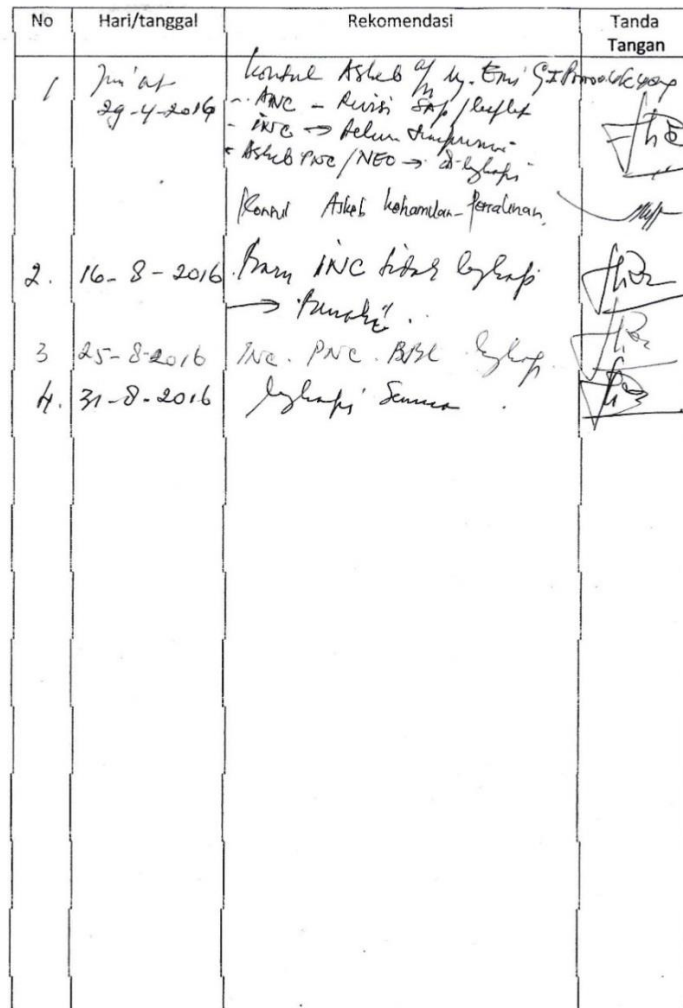 No Hari/tanggal Rekomendasi Tanda Tangan
1 Jum'at 29-4-2016 Konsul Askeb Ny. Emi
- ANC - Revisi SAP/leaflet
- INC → belum
- Askeb PNC/NEO → dilengkapi
Konsul Askeb kehamilan-persalinan
2. 16-8-2016 Baru INC tidak lengkapi
→
3 25-8-2016 INC. PNC. BBL lengkapi
4. 31-8-2016 lengkapi Semua